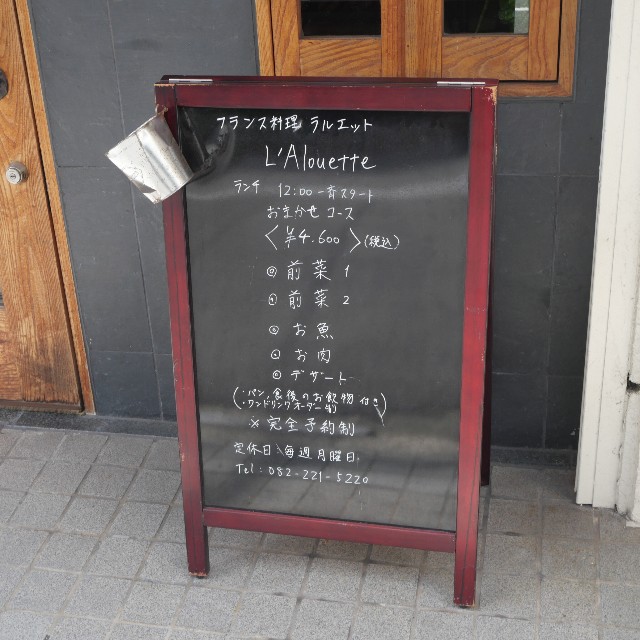 フランス料理 ラルエット
L'Alouette
ランチ 12:00 一斉スタート
おまかせ コース
〈¥4.600〉(税込)
◎ 前菜 1
◎ 前菜 2
◎ お魚
◎ お肉
◎ デザート
(・パン、食後のお飲物 付き
・ワンドリンクオーダー制)
※ 完全予約制
定休日:毎週月曜日.
Tel:082-221-5220